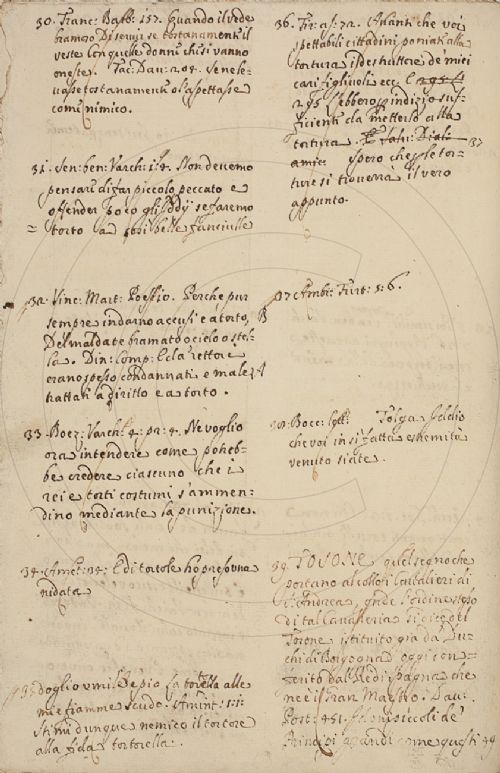 30. Franc: Barb: 157. Quando il vede
bramoso Di servir se tortanamenti il
veste Con quelle donne chi si vanno
oneste. Tac: Dav: 204. Se ne le-
va se tortanamenti o l'aspettasse
come nimico.
31. Sen: ben: Varch: Non devemo
pensare di far piccolo peccato e
offender poco gli Ddij se faremo
torto a così belle fanciulle
32. Vinc: Mart: Perche pur
sempre indarno accusi e a torto,
Del mal da te bramato o cielo o stel-
la. Din: Comp: E la rettore
erano spesso condannati e mal
trattati a diritto e a torto.
33. Boez: Varch: 4: pr: 4. Ne voglio
ora intendere come potreb-
be credere ciascuno che i
rei e torti costumi s'ammen-
dino mediante la punizione.
34. Amet: 34: E di tortole ho presso una
nidata
35. doglio umil Bepio la tortella alle
mie fiamme scude. Amint: 1:1:
Stimi dunque nemico il tortore
alla fida tortorella.
36. Fir: as: 72. Avanti che voi
spettabili cittadini poniate alla
tortura i deshuttore de miei
cari figliuoli ecc. E
295 ebbero indizio suf-
ficiente da metterlo alla
tortura.
spero che per le tor-
ture si troverrà il vero
appunto.
37 Ambr: Furt: 5: 6.
38. Bocc: lett: Tolga Iddio
che voi in sì fatta estremità
venuto siate.
39. TOSONE quel segno che
portano al collo i Cavalieri di
S. Andrea, onde l'ordine stesso
di tal Cavalleria si dice del
Tosone istituito già da Du-
chi di Borgogna oggi con-
ferito dal Re di Spagna che
ne è il Gran Maestro. Dav:
Post: 451. Adoni piccoli de'
Principi grandi come questi